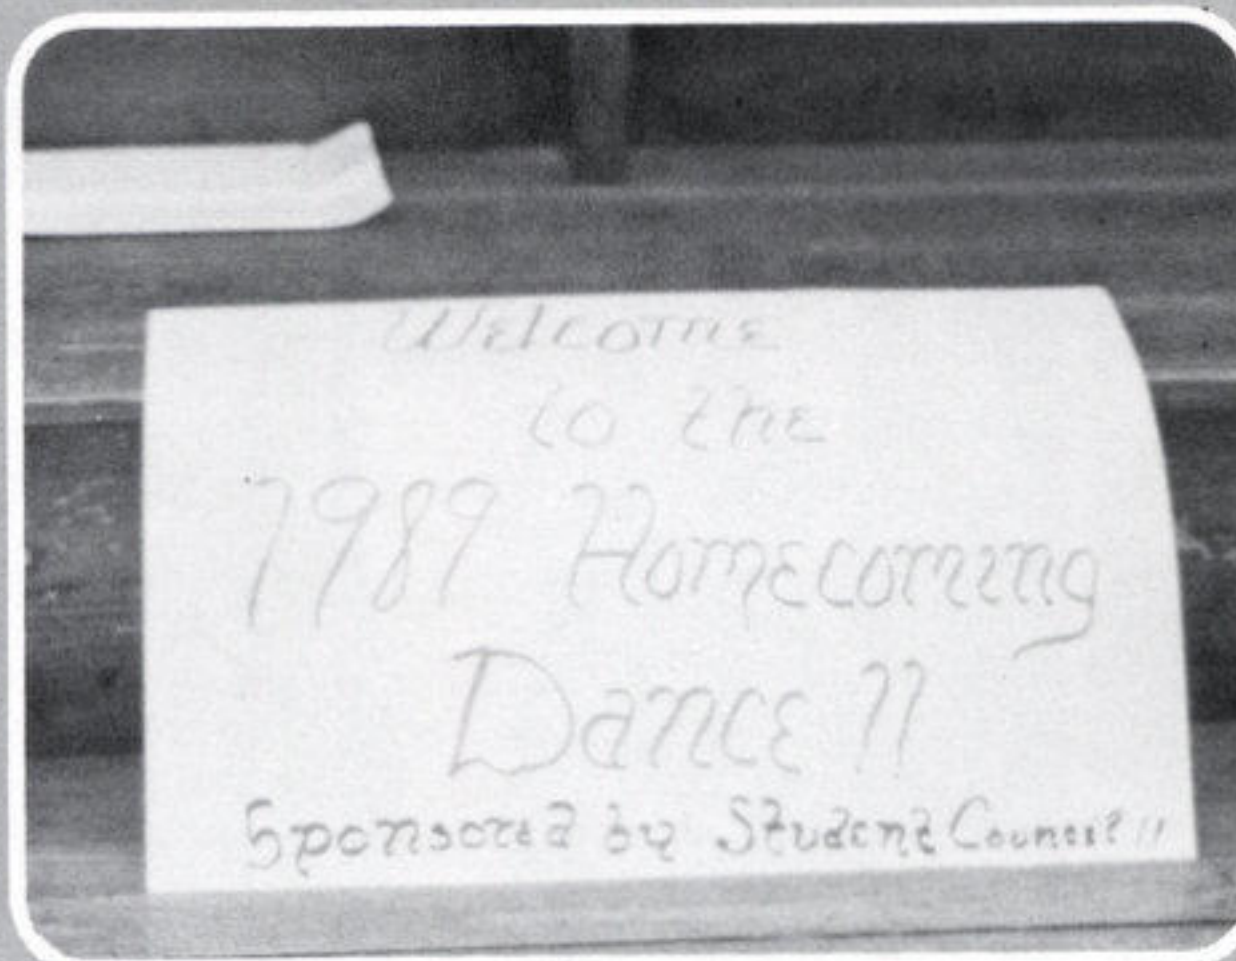 Welcome
to the
1989 Homecoming
Dance !!
Sponsored by Student Council !!